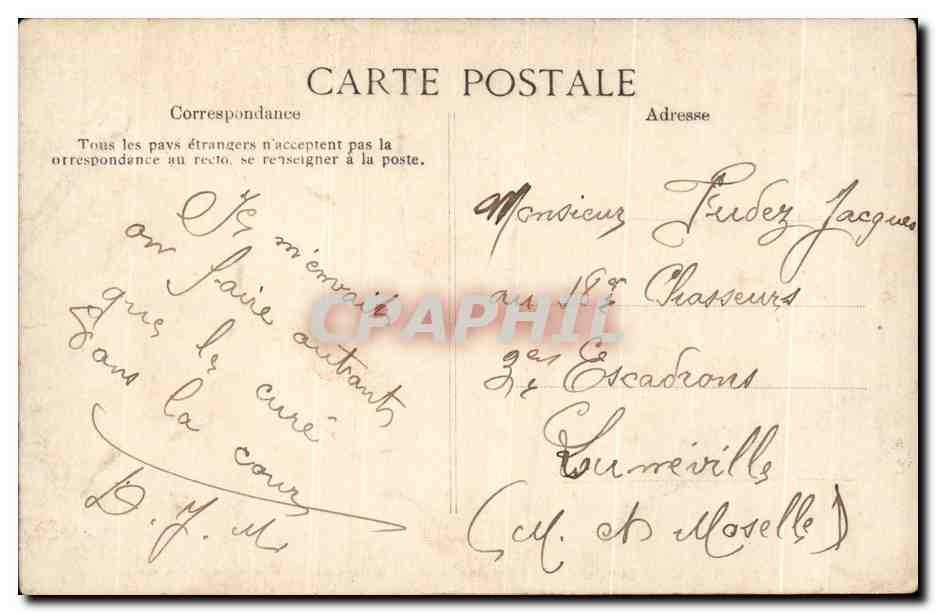 CARTE POSTALE
Correspondance
Tous les pays étrangers n'acceptent pas la
orrespondance au recto, se renseigner à la poste.
Je m'envais
on faire autant
que le curé
dans la cour
D. J. M.
Adresse
Monsieur Fudez Jacques
au 18e Chasseurs
3e Escadrons
Lunéville
(M. et Moselle)
CPAPHIL